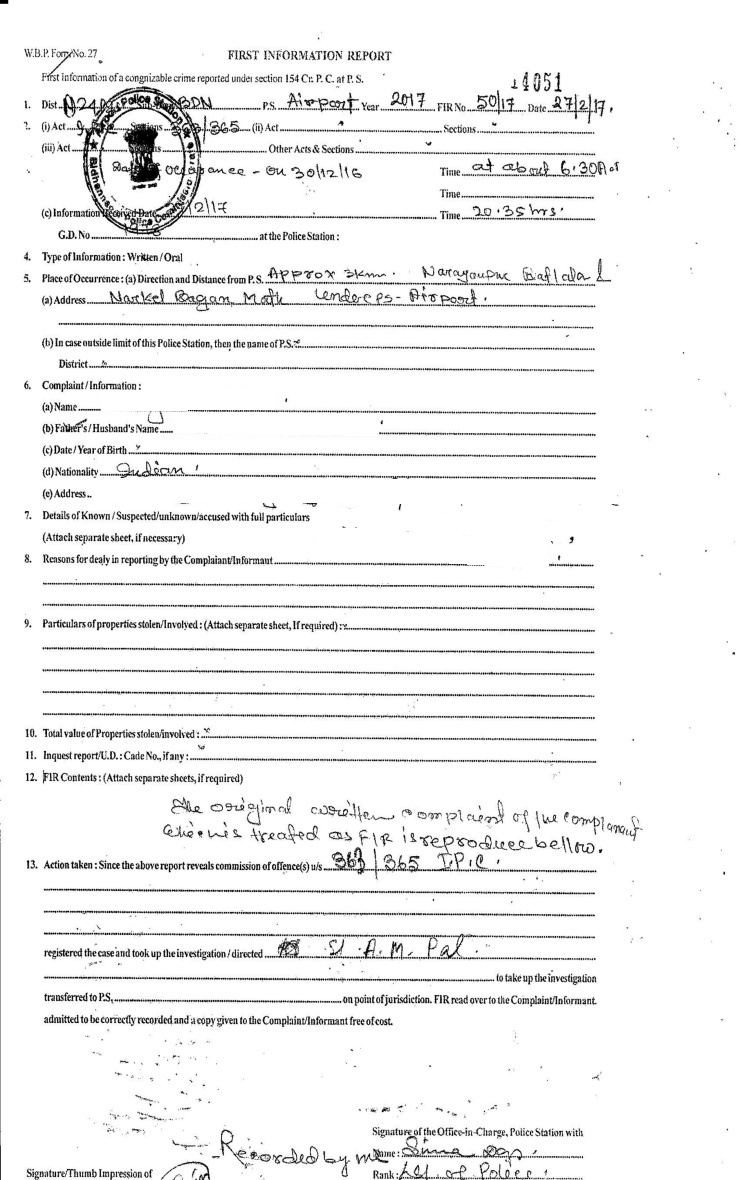 W.B.P. Form No. 27
FIRST INFORMATION REPORT
First information of a congnizable crime reported under section 154 Cr. P. C. at P. S.
14051
1. Dist. BDN P.S. Airport Year 2017 FIR No 50/17 Date 27/2/17.
2. (i) Act Sections 363/365 (ii) Act Sections
(iii) Act Sections Other Acts & Sections
on 30/12/16 Time at about 6.30
Time
(c) Information Received Date 2/17 Time 20.35 hrs.
G.D. No at the Police Station :
4. Type of Information : Written / Oral
5. Place of Occurrence : (a) Direction and Distance from P.S. Approx 3km.
(a) Address Narkel Bagan, Math under PS - Airport.
(b) In case outside limit of this Police Station, then the name of P.S.
District
6. Complaint / Information :
(a) Name
(b) Father's / Husband's Name
(c) Date / Year of Birth
(d) Nationality Indian
(e) Address
7. Details of Known / Suspected/unknown/accused with full particulars
(Attach separate sheet, if necessary)
8. Reasons for dealy in reporting by the Complaiant/Informant
9. Particulars of properties stolen/Involved : (Attach separate sheet, If required) :
10. Total value of Properties stolen/involved :
11. Inquest report/U.D. : Cade No., if any :
12. FIR Contents : (Attach separate sheets, if required)
The original written complaint of the complainant
which is treated as FIR is reproduce bellow.
13. Action taken : Since the above report reveals commission of offence(s) u/s 363/365 I.P.C.
registered the case and took up the investigation / directed SI A.M. Pal.
to take up the investigation
transferred to P.S, on point of jurisdiction. FIR read over to the Complaint/Informant.
admitted to be correctly recorded and a copy given to the Complaint/Informant free of cost.
Signature of the Office-in-Charge, Police Station with
Recorded by me Name :
Signature/Thumb Impression of Rank : of Police